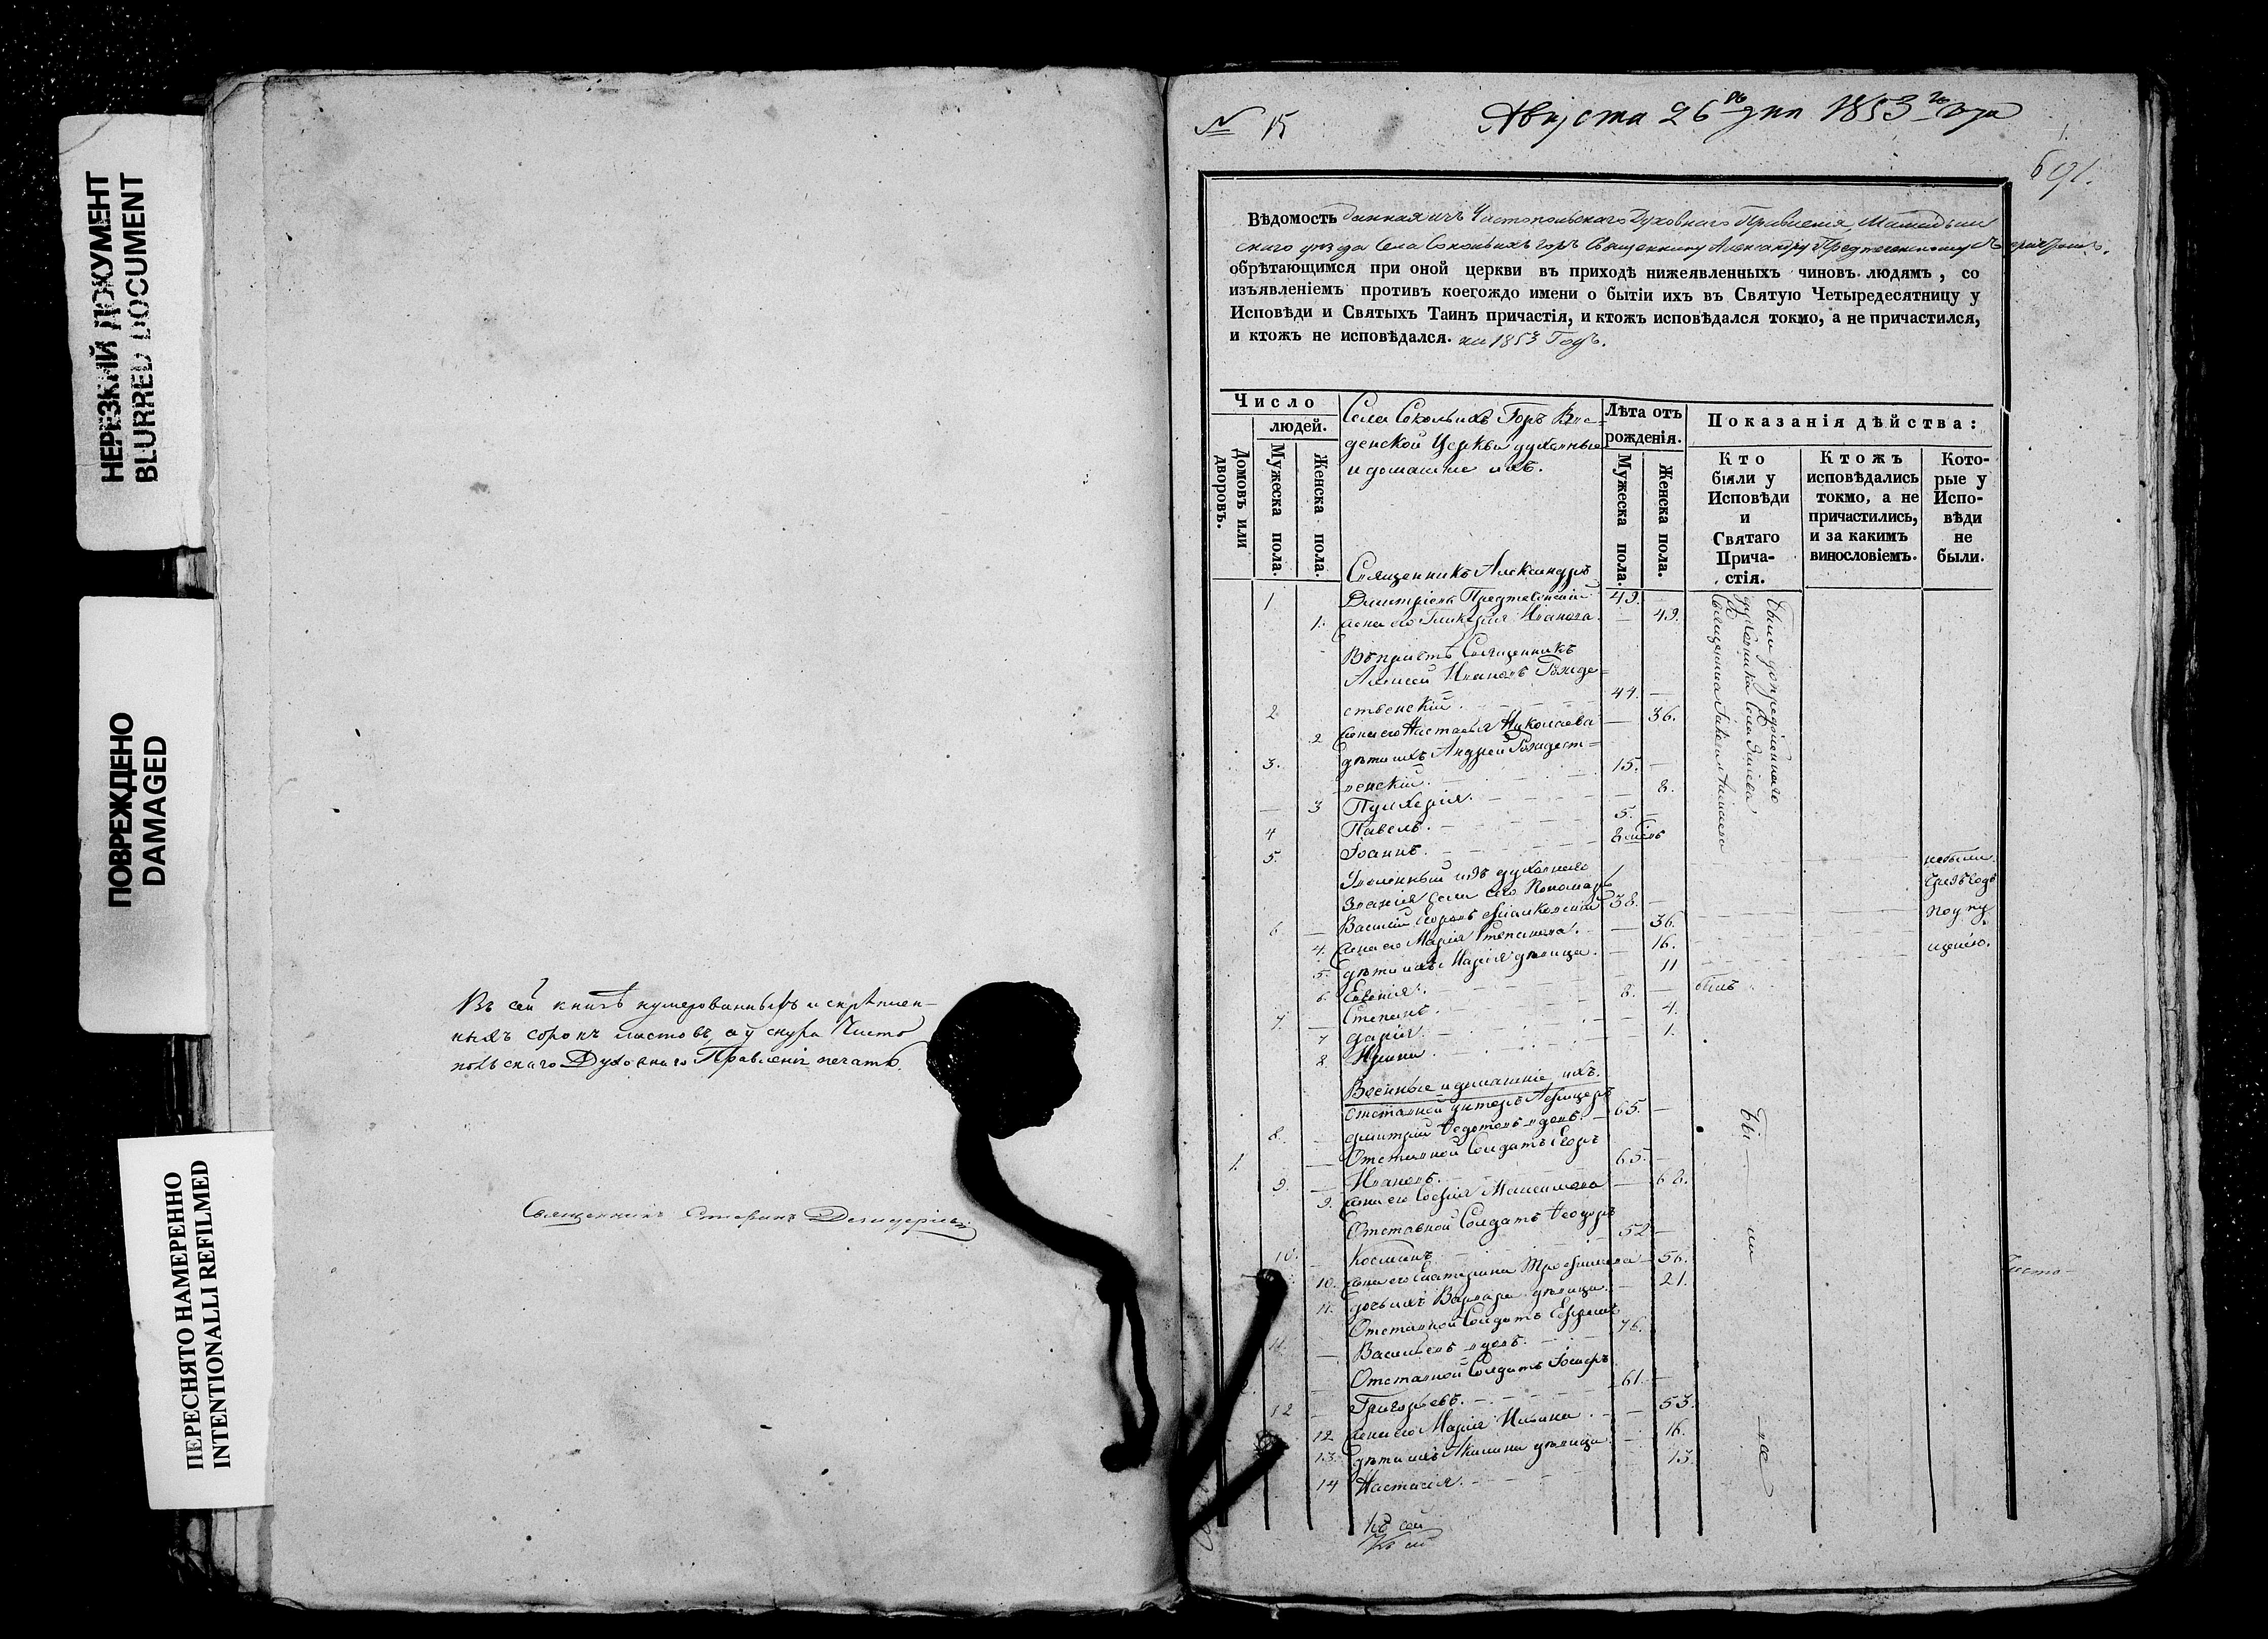 НЕРЕЗКИЙ ДОКУМЕНТ
BLURRED DOCUMENT
ПОВРЕЖДЕНО
DAMAGED
ПЕРЕСНЯТО НАМЕРЕННО
INTENTIONALLI REFILMED
Въ сей книгѣ нумерованныхъ и скрѣплен-
ныхъ сорокъ листовъ, а у снура Чисто
польскаго Духовнаго Правленія печать.
Священникъ Стефанъ
№ 15
Августа 26 дня 1853 года
691.
Вѣдомость данная изъ Чистопольскаго Духовнаго Правленія, Мамадыш
скаго уѣзда Села Сокольихъ горъ Священнику Александру Предтеченскому съ причтомъ.
обрѣтающимся при оной церкви въ приходѣ нижеявленныхъ чиновъ людямъ, со
изъявленіемъ противъ коегождо имени о бытіи ихъ въ Святую Четыредесятницу у
Исповѣди и Святыхъ Таинъ причастія, и ктожъ исповѣдался токмо, а не причастился,
и ктожъ не исповѣдался. на 1853 Годъ.
Число
людей.
Домовъ или дворовъ.
Мужеска пола.
Женска пола.
Села Сокольихъ Горъ Вве-
денской Церкви духовные
и домашніе ихъ.
Лѣта отъ
рожденія.
Мужеска пола.
Женска пола.
Показанія дѣйства:
Кто
были у
Исповѣди
и
Святаго
Прича-
стія.
Ктожъ
исповѣдались
токмо, а не
причастились,
и за какимъ
винословіемъ.
Кото-
рые у
Испо-
вѣди
не
были.
Священникъ Александръ
1 Димитріевъ Предтеченскій 49.
1. жена его Гликерія Иванова. — 49.
Священникъ
Алексей Ивановъ Рожде-
2. ственскій. 44. —
2 жена его Настасья Николаева — 36.
3. дѣти ихъ Андрей Рождест-
венскій. 15. —
3 Пулхерія. — 8.
4 Павелъ. 5. —
5. Іоаннъ.
Были у
духовника Села
Священника
небыли
Уволенный изъ духовнаго
званія села сего Пономарь
6. Василій Егоровъ 38. —
4. жена его Марія Степанова. — 36.
5. дѣти ихъ Марія дѣвица. — 16.
6. Евгенія. 11
7. Степанъ. 8. — былъ
7 Дарія. 4.
8. Ирина. 1.
по упу
щенію.
Военные и домашніе ихъ.
Отставной унтеръ Афицеръ
8. Дмитрій Ѳедотовъ вдовъ. 65. —
1. Отставной Солдатъ Егоръ
9. Ивановъ. 65. —
9. жена его Софія Максимова — 68.
Отставной Солдатъ Ѳеодоръ
10. Косминъ 52 —
10. жена его Екатерина Трофимова — 56.
11. дочь ихъ Варвара дѣвица. — 21.
Отставной Солдатъ Ефремъ
11. Васильевъ вдовъ. 76.
Отставной Солдатъ Іосифъ
12 Григорьевъ. 61. —
12 жена его Марія Ильина. — 53.
13. дѣти ихъ Акилина дѣвица — 16.
14 Настасія. — 13.
Бы — ли — все
Чисто-
Къ сей